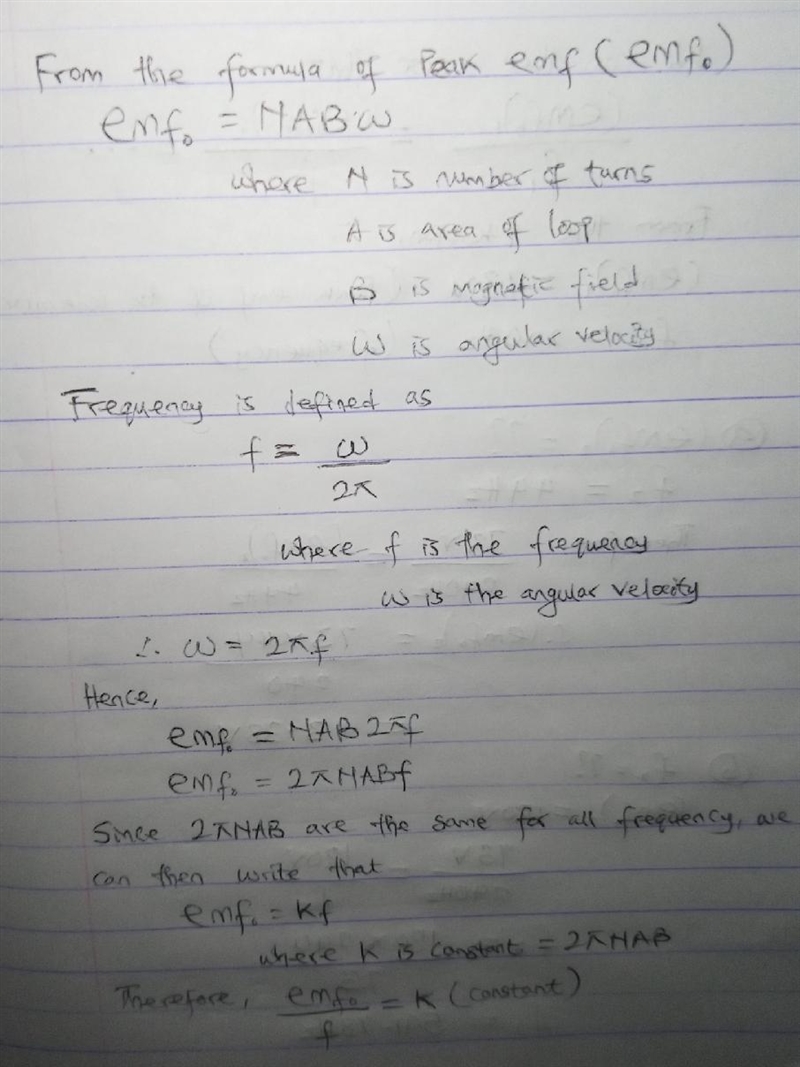 From the formula of Peak emf (emf₀)
emf₀ = NABω
where N is number of turns
A is area of loop
B is magnetic field
ω is angular velocity
Frequency is defined as
f = ω
2π
where f is the frequency
ω is the angular velocity
∴ ω = 2πf
Hence,
emf₀ = NAB2πf
emf₀ = 2πNABf
Since 2πNAB are the same for all frequency, we
can then write that
emf₀ = Kf
where K is constant = 2πNAB
Therefore, emf₀ = K (constant)
f